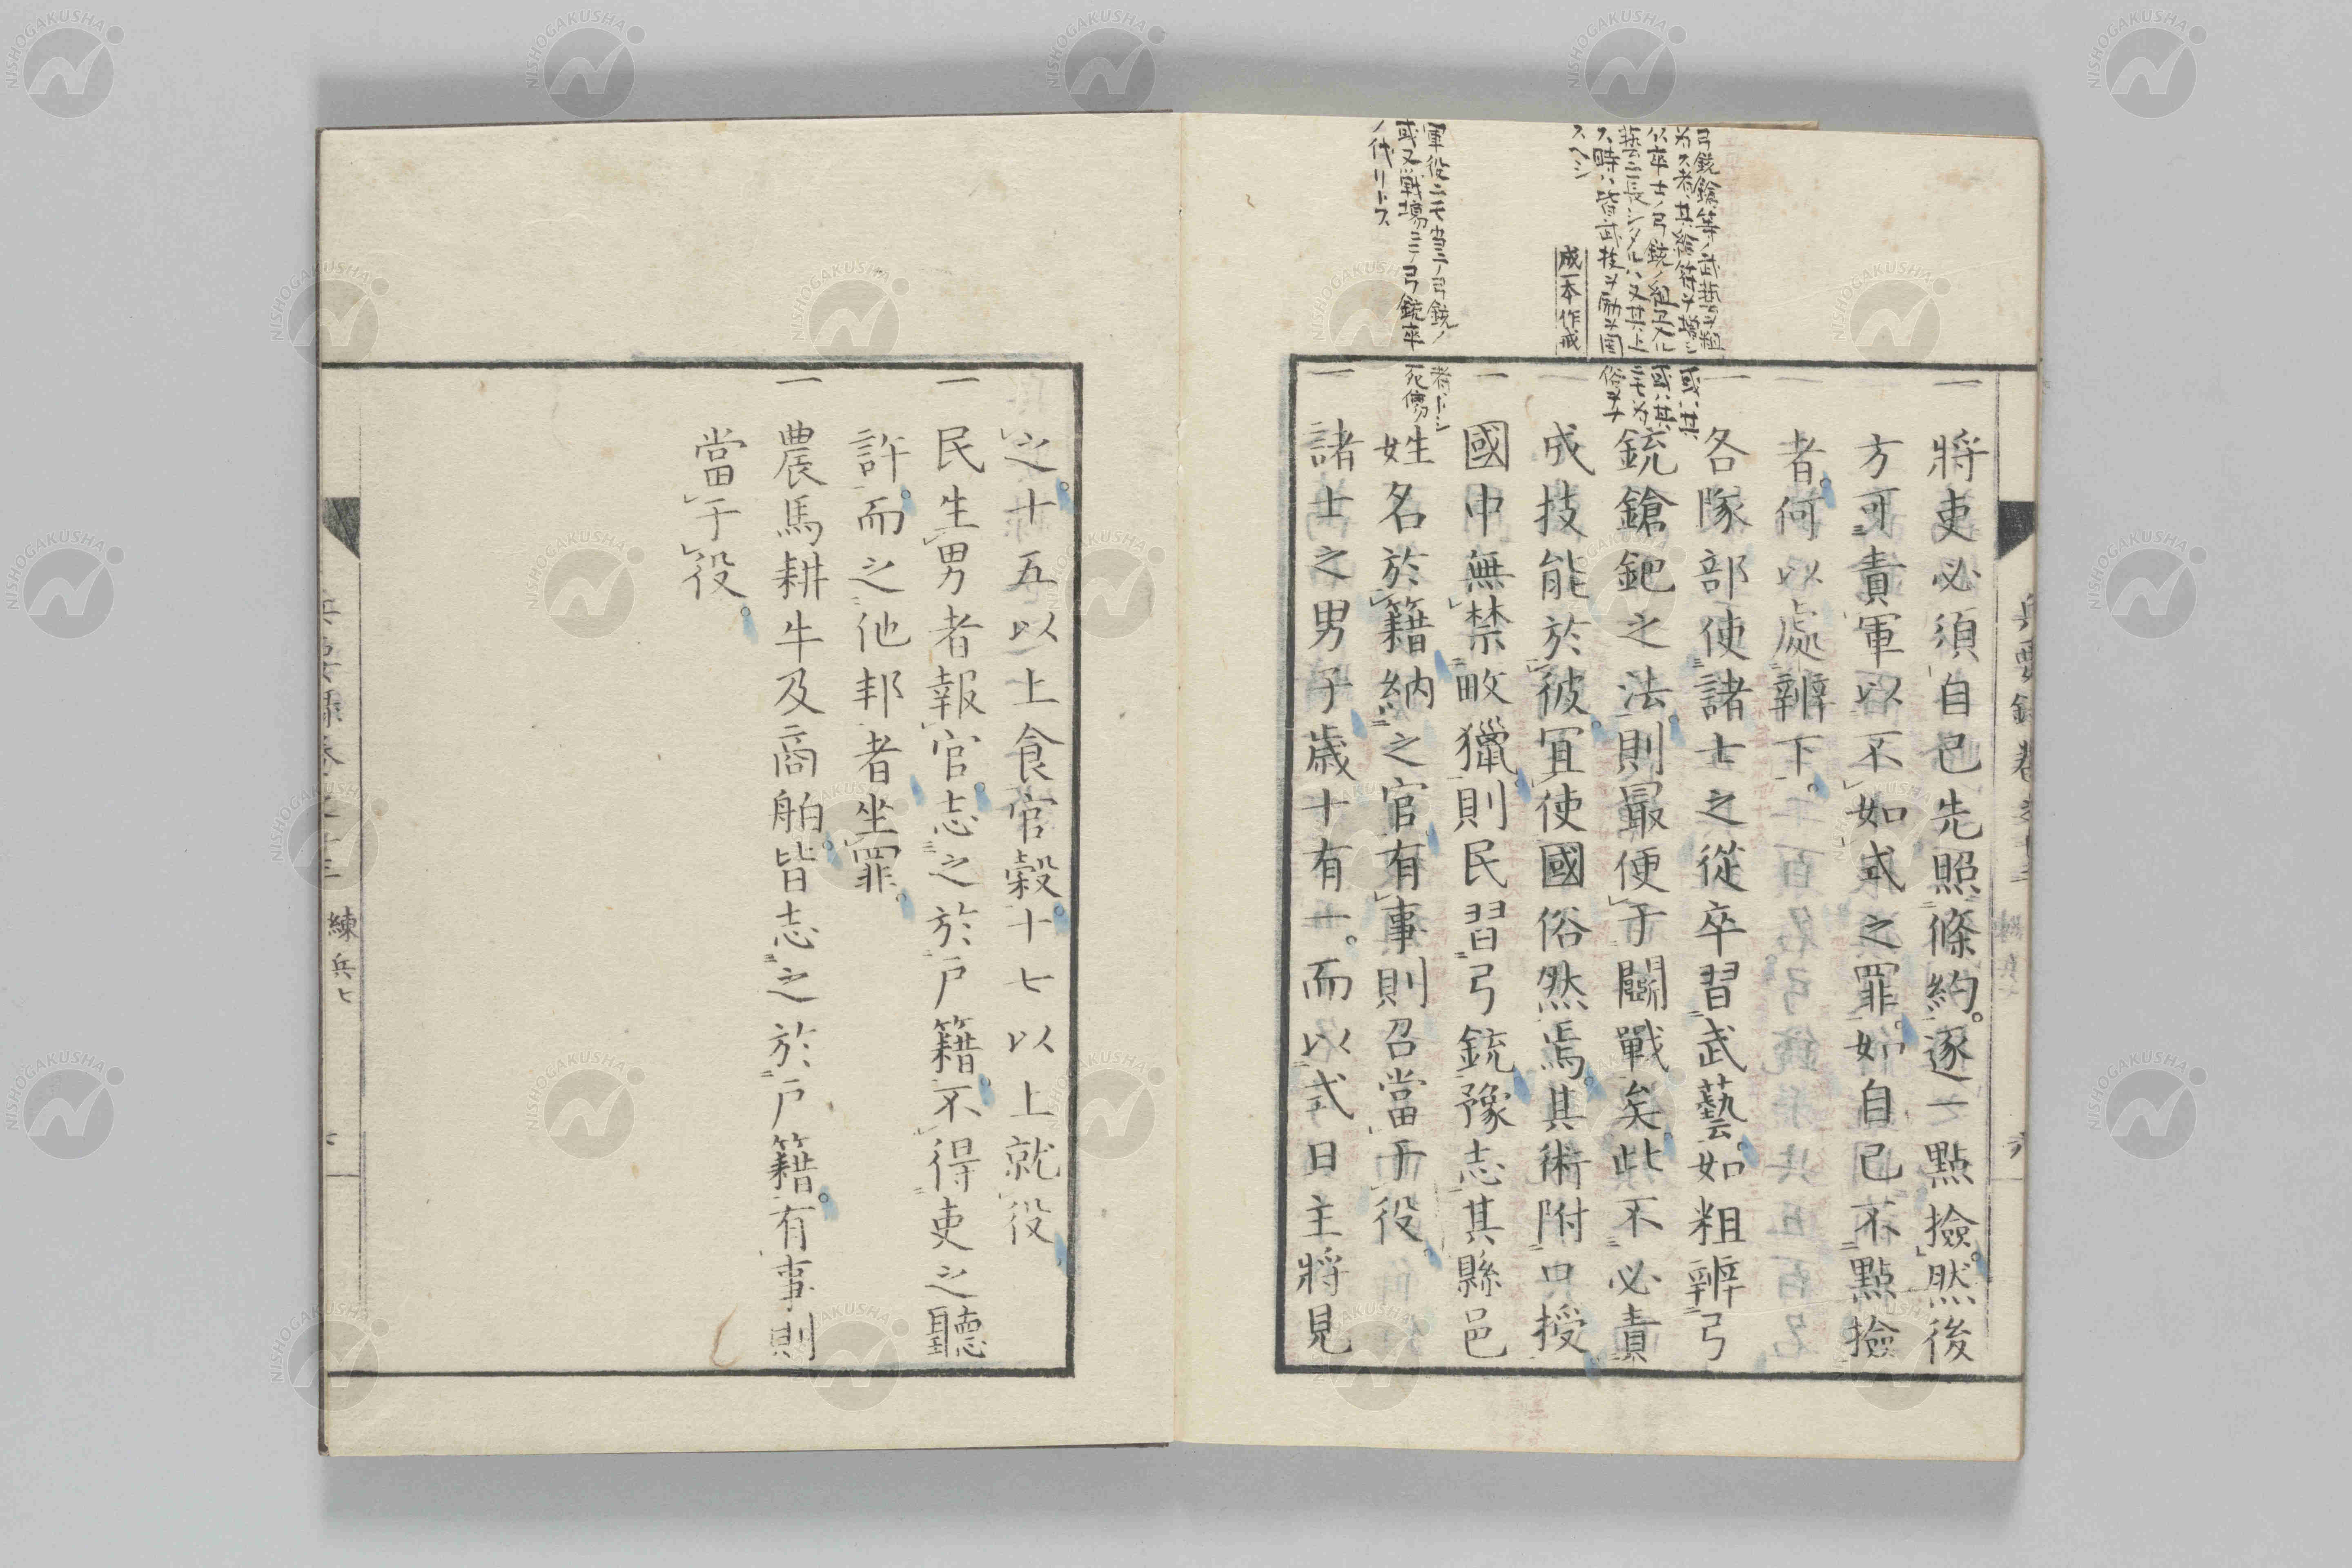 弓銃鎗等ノ武芸ヲ粗
為ス者ハ其給符ヲ増シ或ハ其
公卒士ノ弓銃ノ組
芸ニ長シタルハ又其上ニモ為
ス時ハ皆武技ヲ励ヲ国俗ヲナ
スヘシ
成一本作戒
軍役ニモ皆ニノ弓銃ノ者トシ
或又戦場ニテノ弓銃卒死傷
ノ代リトス
一將吏必須自己先照條約。逐一點撿。然後
方可責軍以不如式之罪。如自己不點撿
者。何以處辨下。
一各隊部使諸士之從卒習武藝。如粗辨弓
銃鎗鈀之法。則最便于鬬戰矣。此不必責
成技能於彼。宜使國俗然焉。其術附口授
一國中無禁畋獵。則民習弓銃。豫志其縣邑
姓名於籍。納之官。有事則召當于役。
一諸士之男子歳十有一。而以式日主將見
之。十五以上食官穀。十七以上就役
一民生男者報官。志之於戸籍。不得吏之聽
許。而之他邦者坐罪。
一農馬耕牛及商舶。皆志之於戸籍。有事則
當于役。
兵要録卷之十三 練兵七